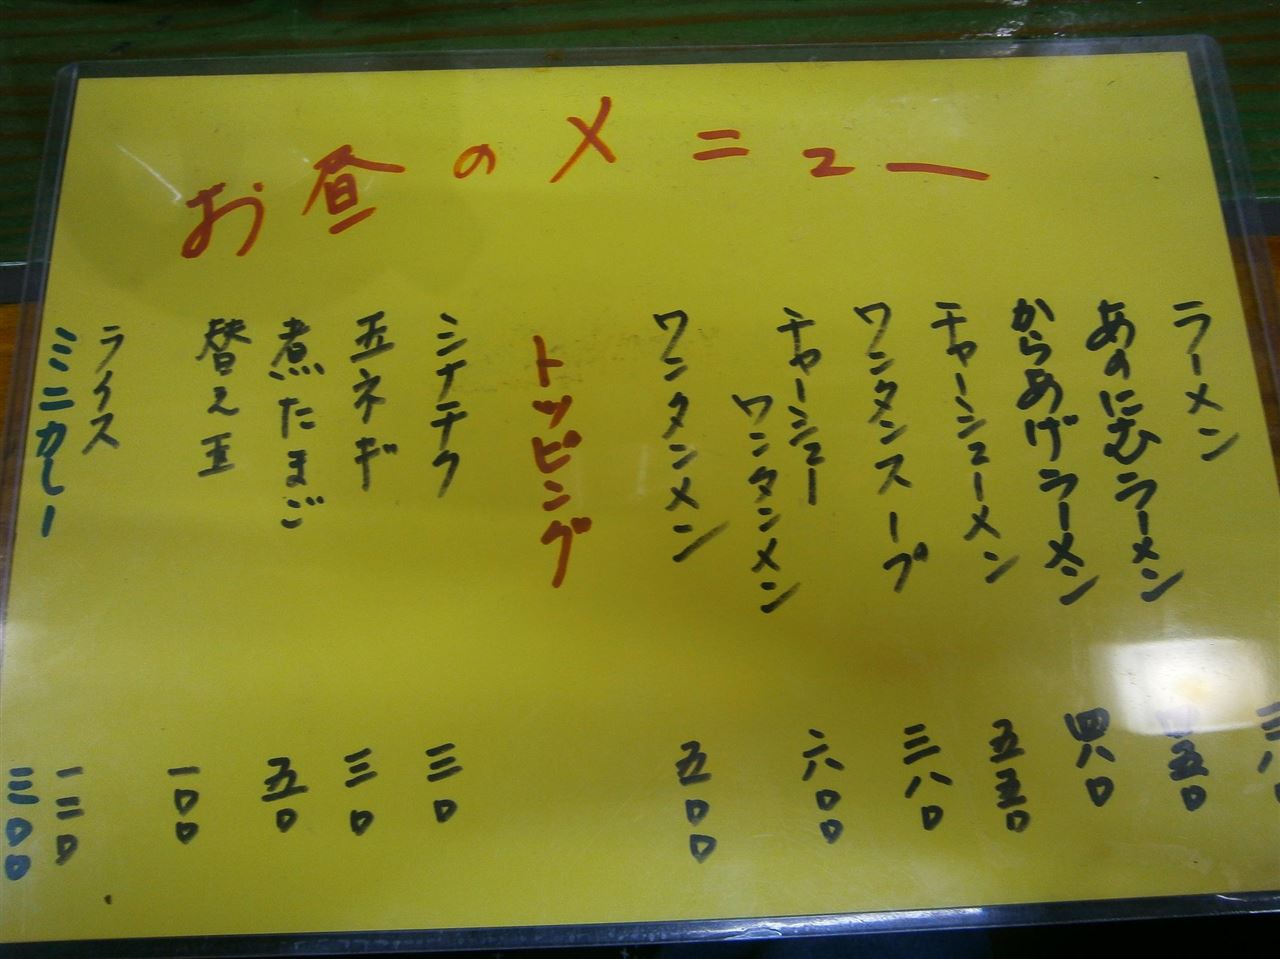 お昼のメニュー
ラーメン 三八〇
あのにむラーメン 四五〇
からあげラーメン 四八〇
チャーシューメン 五五〇
ワンタンスープ 三八〇
チャーシュー
ワンタンメン 六〇〇
ワンタンメン 五〇〇
トッピング
シナチク 三〇
玉ネギ 三〇
煮たまご 五〇
替え玉 一〇〇
ライス 一二〇
ミニカレー 三〇〇